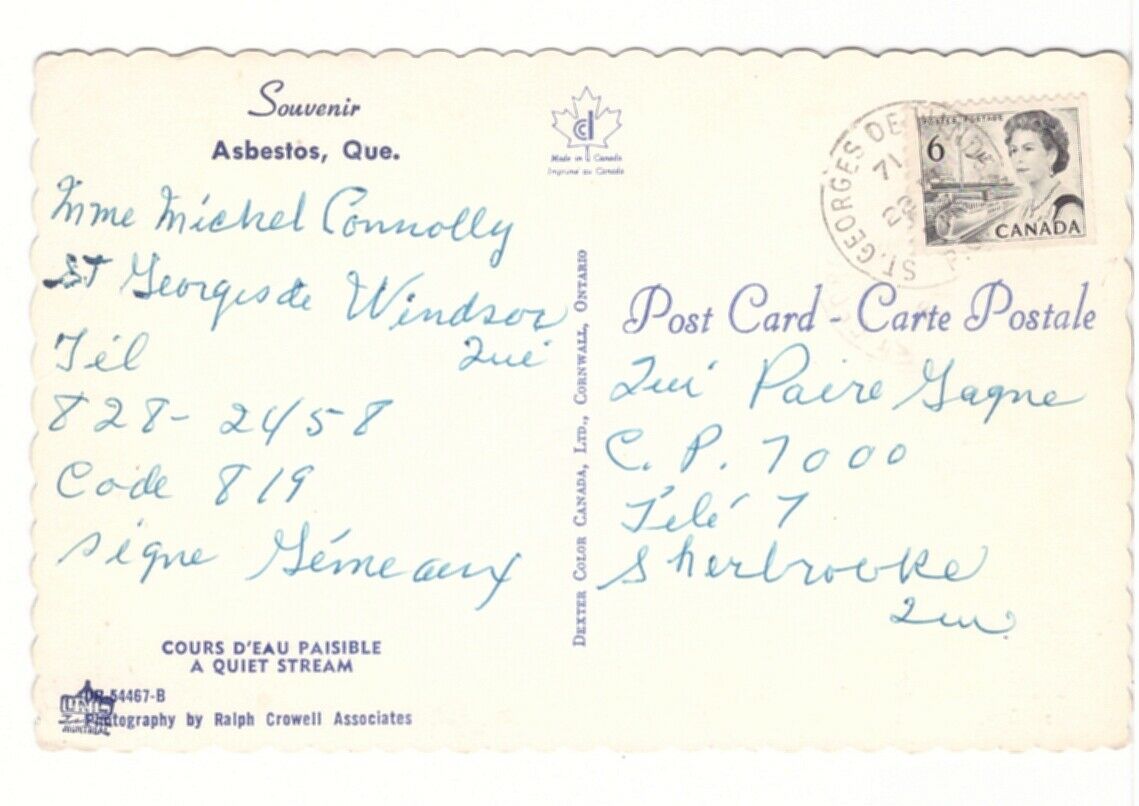 Souvenir
Asbestos, Que.
Mme Michel Connolly
St Georges de Windsor
Qué
Tél
828-2458
Code 819
signe Gémeaux
COURS D'EAU PAISIBLE
A QUIET STREAM
DR-54467-B
Photography by Ralph Crowell Associates
UNIC
MONTREAL
Made in Canada
Imprimé au Canada
DEXTER COLOR CANADA, LTD., CORNWALL, ONTARIO
ST. GEORGES DE WINDSOR
71
POSTES POSTAGE
6
CANADA
Post Card - Carte Postale
Qui Paire Gagne
C. P. 7000
Télé 7
Sherbrooke
Que